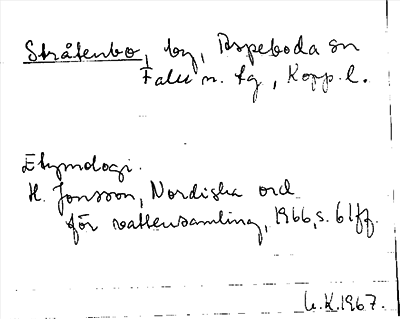 Stråtenbo, by, Aspeboda sn
Falu n. tg, Kopp. l.
Etymologi.
H. Jonsson, Nordiska ord
för vattensamling, 1966, s. 61ff.
U.K. 1967.